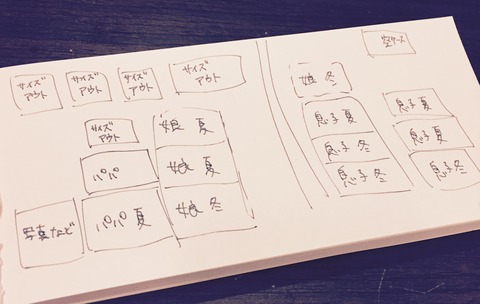 サイズ
アウト
サイズ
アウト
サイズ
アウト
サイズ
アウト
サイズ
アウト
娘 夏
パパ
娘 夏
写真など
パパ 夏
娘 冬
空ケース
娘 冬
息子 夏
息子 夏
息子 冬
息子 夏
息子 冬
息子 冬